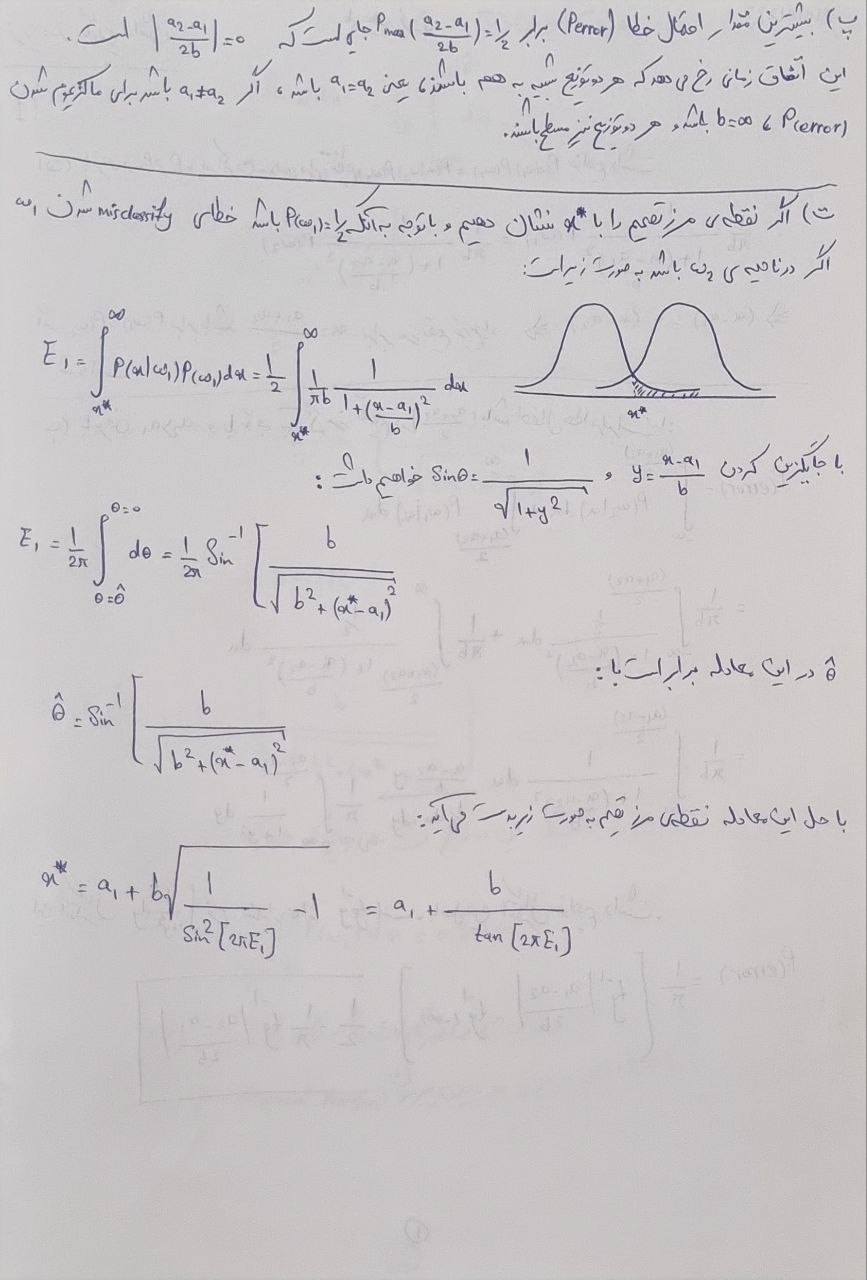 پ) بیشترین مقدار احتمال خطا (Perror) برابر Pmax(a2-a1/2b)=1/2 جایی است که |a2-a1/2b|=0 است.
این اتفاق زمانی رخ می‌دهد که هر دو توزیع شبیه به هم باشند، یعنی a1=a2 باشد، اگر a1≠a2 باشد برای ماکزیموم شدن
P(error)، b=∞ باشد و هر دو توزیع نیز مسطح باشند.
ت) اگر نقطه‌ی مرز تصمیم را با x* نشان دهیم و با توجه به آنکه P(ω1)=1/2 باشد خطای misclassify شدن ω1
اگر در ناحیه‌ی ω2 باشد به صورت زیر است:
E1 = ∫_{x*}^{∞} P(x|ω1)P(ω1)dx = 1/2 ∫_{x*}^{∞} 1/πb 1/(1+(x-a1/b)^2) dx
x*
با جایگزین کردن y = x-a1/b و Sinθ = 1/√(1+y^2) خواهیم داشت:
E1 = 1/2π ∫_{θ=θ̂}^{θ=0} dθ = 1/2π Sin^-1 [b/√(b^2+(x*-a1)^2)
θ̂ در این معادله برابر است با:
θ̂ = Sin^-1 [b/√(b^2+(x*-a1)^2)
با حل این معادله نقطه‌ی مرز تصمیم به صورت زیر بدست می‌آید:
x* = a1 + b√(1/Sin^2[2πE1] - 1) = a1 + b/tan[2πE1]